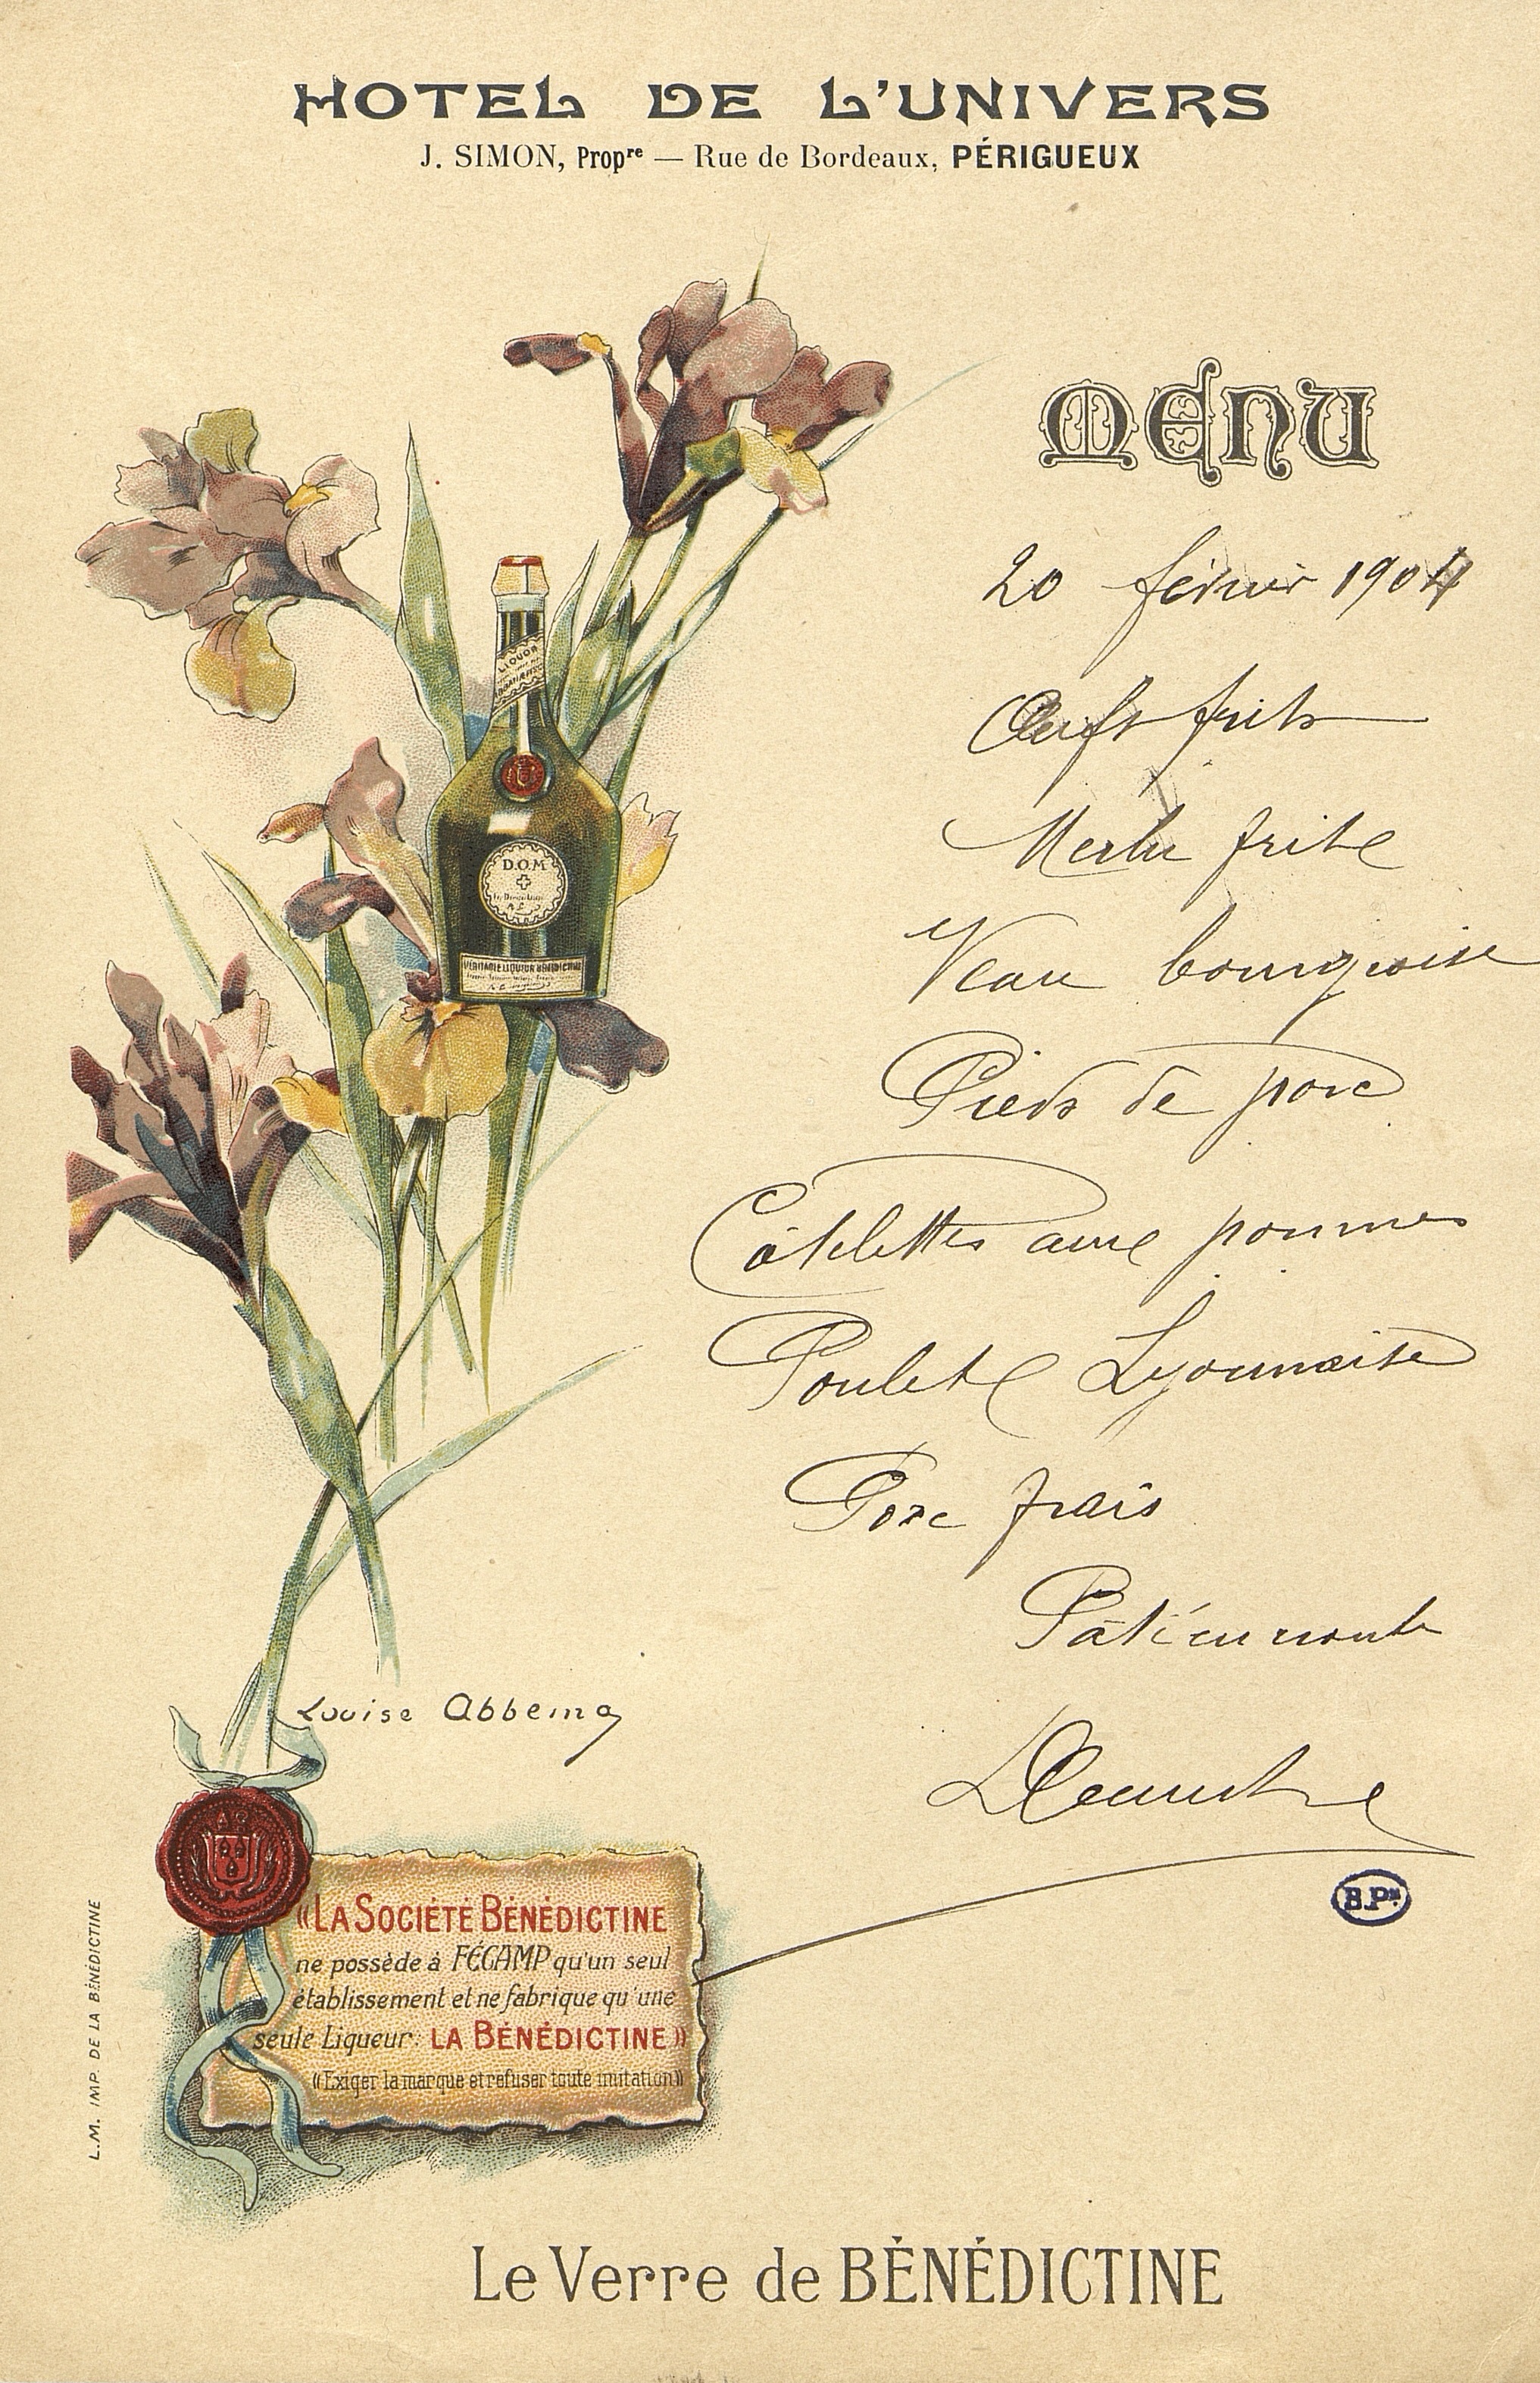 HOTEL DE L'UNIVERS
J. SIMON, Propre — Rue de Bordeaux, PÉRIGUEUX
MENU
20 février 1904
Oeufs frits
Merlu frite
Veau bourgeoise
Pieds de porc
Côtelettes aux pommes
Poulet Lyonnaise
Porc frais
Pâté en croute
LIQUOR
D.O.M
VÉRITABLE LIQUEUR BÉNÉDICTINE
Louise Abbema
B.Px
«LA SOCIÉTÉ BÉNÉDICTINE
ne possède à FÉCAMP qu'un seul
établissement et ne fabrique qu'une
seule Liqueur: LA BÉNÉDICTINE»
«Exiger la marque et refuser toute imitation»
L.M. IMP. DE LA BÉNÉDICTINE
Le Verre de BÉNÉDICTINE